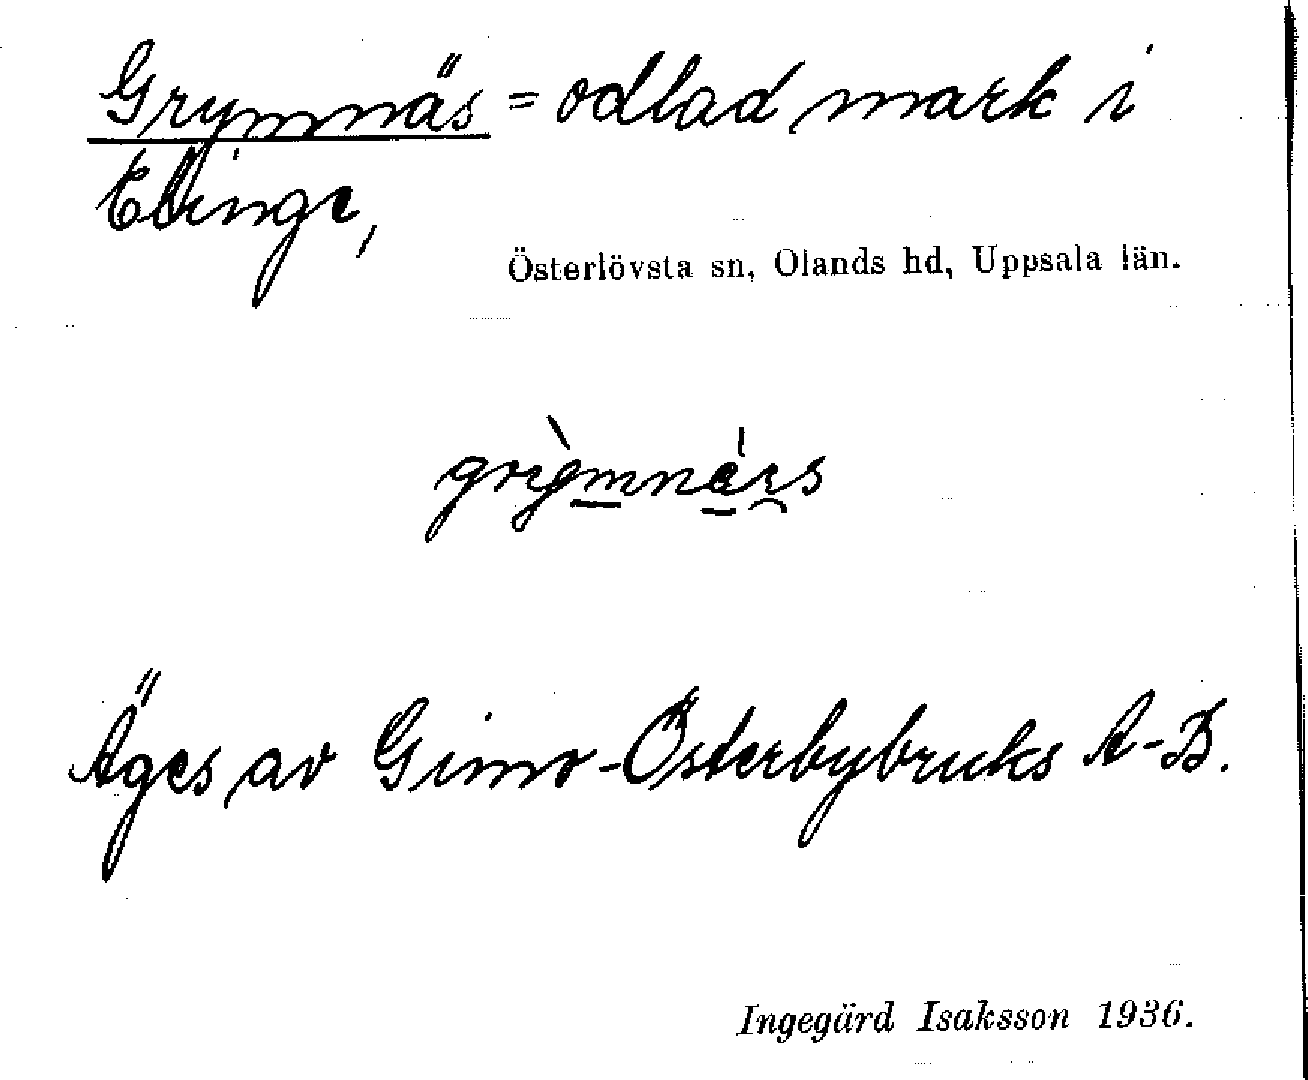 Grymnäs = odlad mark i
Elinge,
Österlövsta sn, Olands hd, Uppsala län.
Äges av Gimo-Österbybruks A-B.
Ingegärd Isaksson 1936.